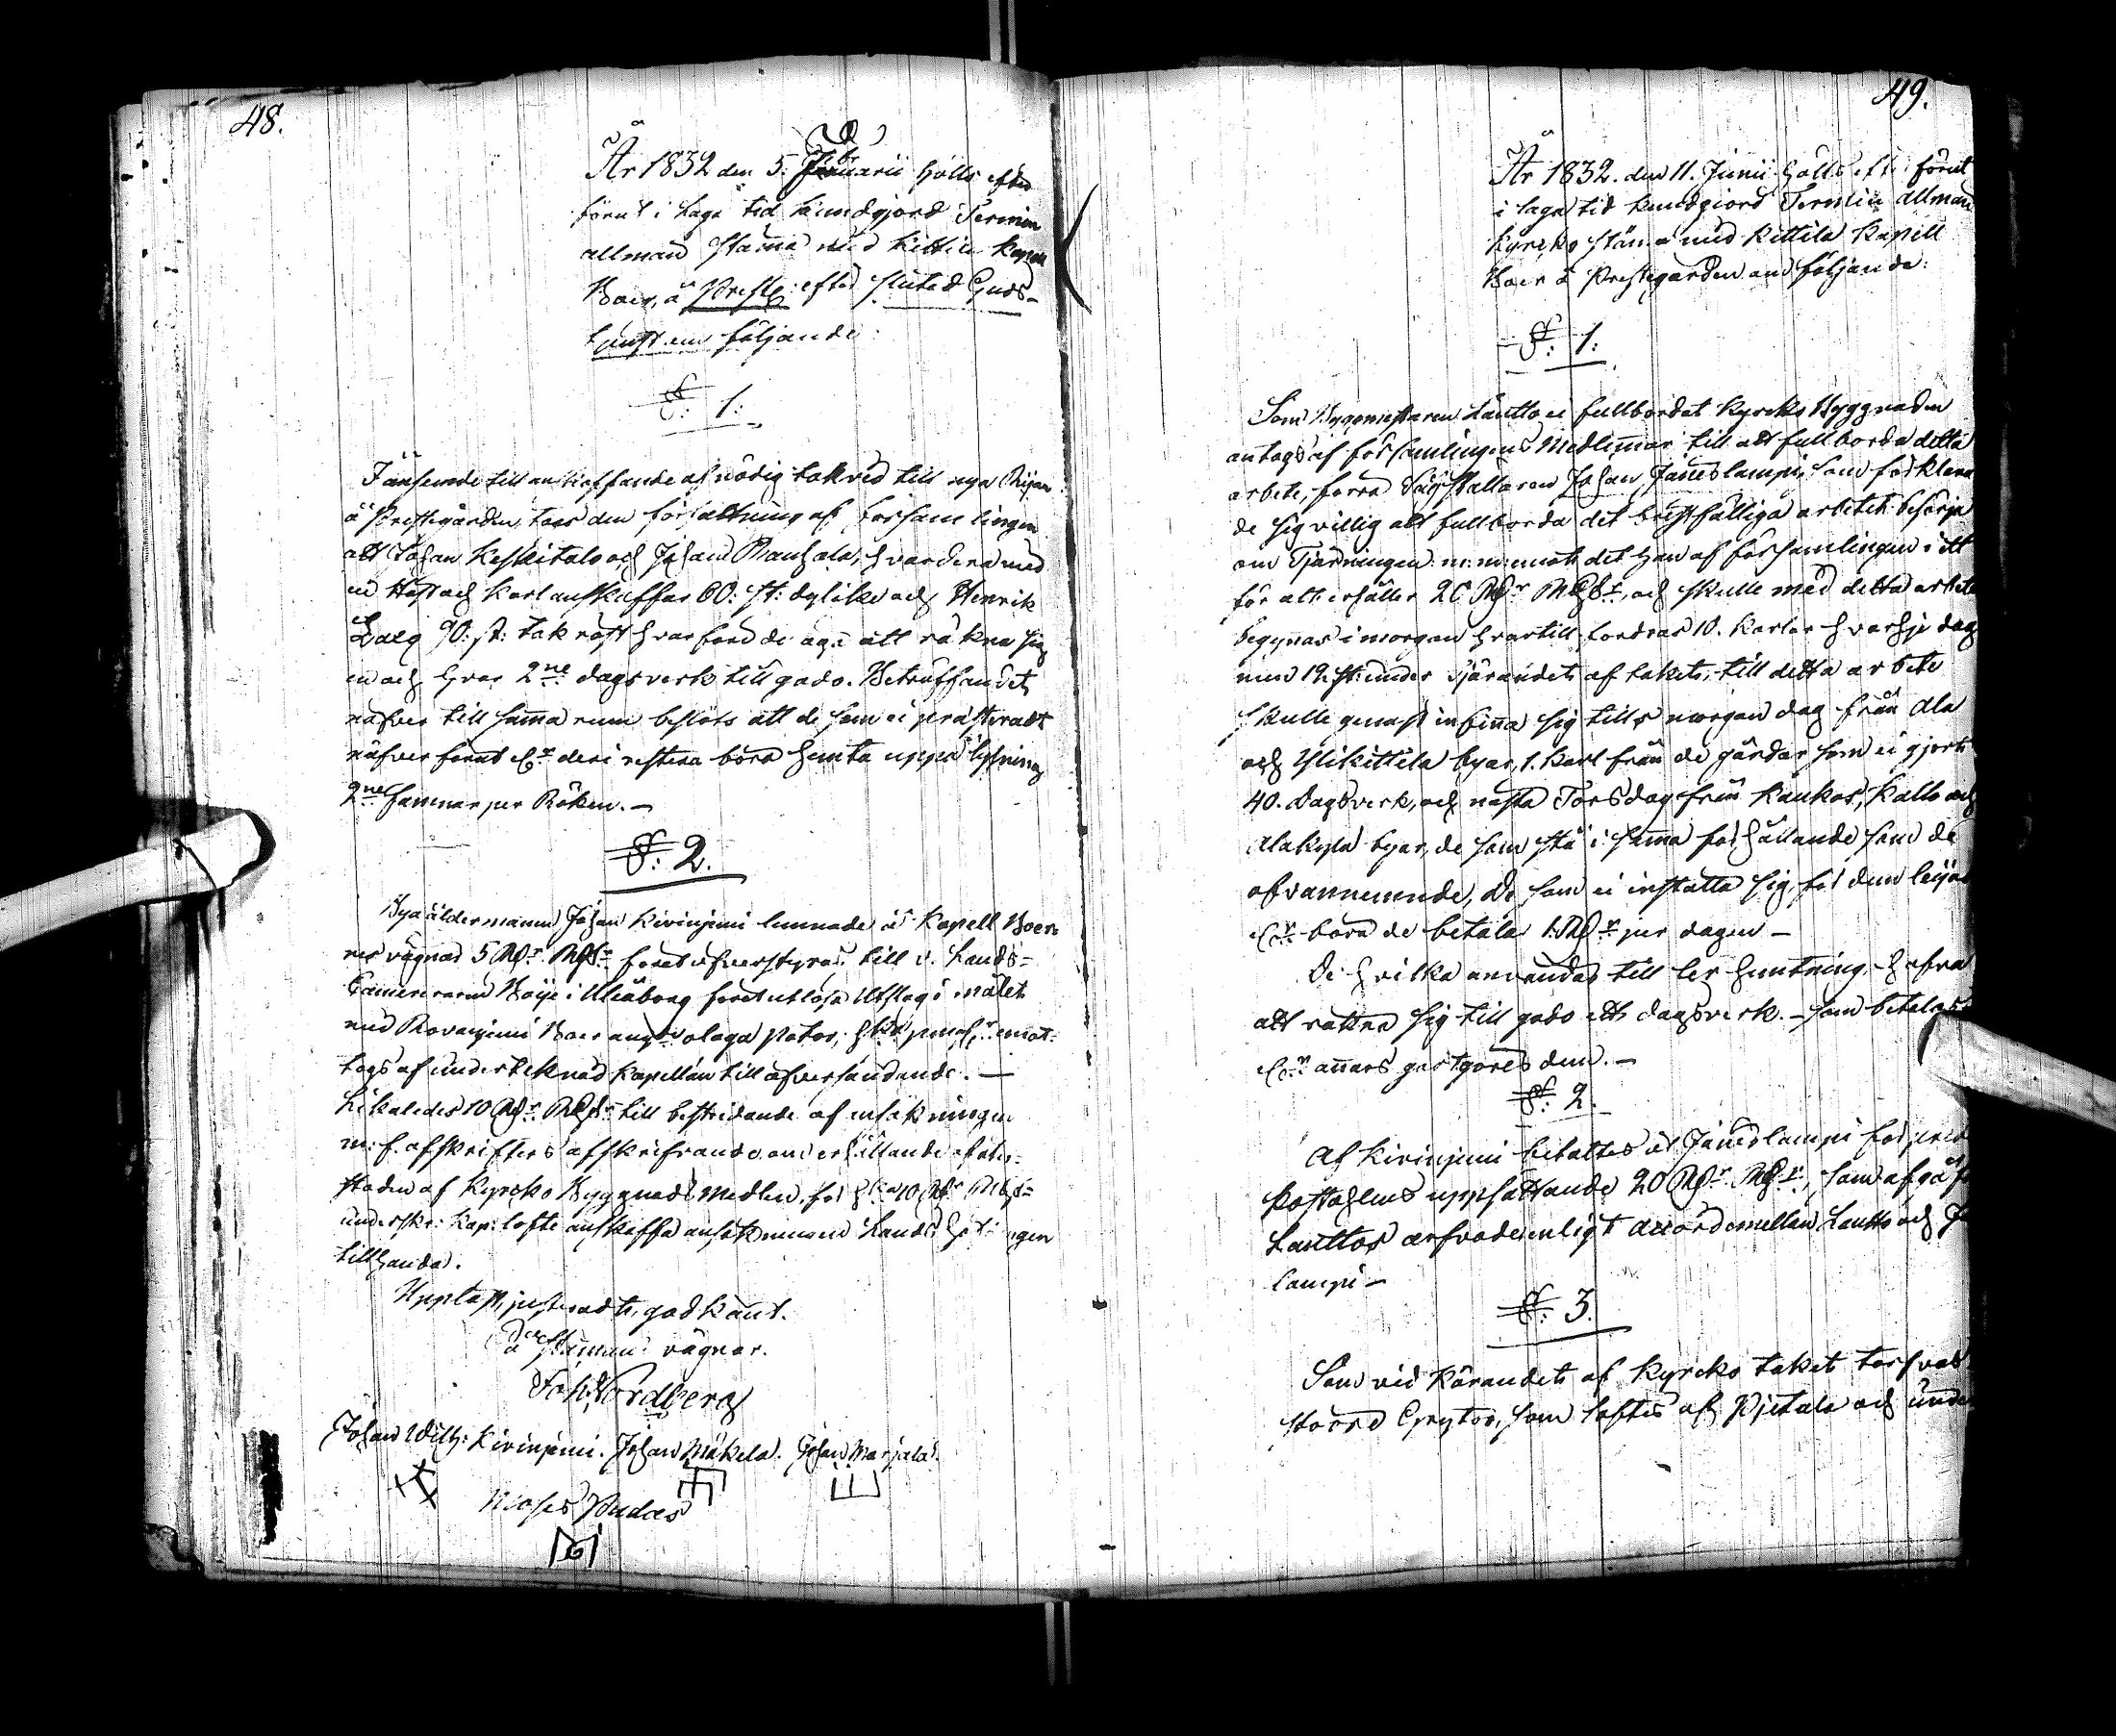 48.
År 1832 den 5. Februarii hölls efter
förut i laga tid kundgjord Termin
allmän stämma med Kittilä Kapell
Boer, å Prestg: efter slutad Guds-
tjenst om följande:
§: 1:
I anseende till anskaffande af nödig takved till nya Rijan
å Prestegården, togs den författning af församlingen
att Johan Keskitalo och Johan Rauhala, hvardera med
en Häst och Karl anskaffar 60: st: dylika och Henrik
90: st: tak hvarföre de äga att räkna sig
en och hvar 2ne dagsverk till godo. Beträffandet
näfver till samma rum beslöts att de som ej præsterat
näfver förut deri restera böra hemta uppå lysning
2ne famnar per Röken. —
§: 2.
Byaåldermannen Johan Kiviniemi lemnade å Kapell Boer-
nes vägnar 5 Rbr. till v. Lands-
Camereraren i Uleåborg för att utlösa Utslag i målet
med Rovaniemi Boer emot-
togs af undertecknad Kapellan till öfversändande. —
Likaledes 10 Rbr. till bestridande af ansökningen
m: f. afskrifters afskrifvande om erhållande af åter-
stoden af Kyrcko Byggnads Medlen, för 10
underskr: Kap: löfte anskaffa ansökningen Landshöfdingen
tillhanda.
Uppläst, justeradt, godkänt.
å Stämmans vägnar.
Joh: Nordberg
Johan Wilh: Kiviniemi. Johan Mäkelä. Johan Marjala.
Moses Pudas
49.
År 1832. den 11. Junii hölls efter förut
i laga tid kundgiord Termin allmän
Kyrcko stämma med Kittilä Kapell
Boer å Prestegården om följande:
§: 1:
Som Byggmästaren Lautto ei fullbordat Kyrcko Byggnaden
antogs af församlingens Medlemmar till att fullborda detta
arbete, förra Johan Jänneslampi, som förklara
de sig villig att fullborda det bristfälliga arbetet: besörja
om Tjärningen m: m: emot det han af församlingen i ett
för allt erhåller 20 Rbr. och skulle med detta arbete
begynnas i morgon hvartill fordras 10. Karlar hvarje dag
men 12 st: under tjärandet af taket, till detta arbete
skulle genast infinna sig tills morgon dag från Ala
och Ylikittilä byar, 1. Karl från de gårdar som ei gjort
40. Dagsverk, och nästa Torsdag från Kaukos, Kallo och
Alakylä byar, de som stå i samma förhållande som de
ofvannemnde, De som ei inställa sig, för dem lejas
böra de betala 1: Rbr per dagen —
De hvilka användas till ler hemtning hafva
att räkna sig till godo ett dagsverk. — som betalas
annars godtgöres dem. —
§: 2.
Af Kiviniemi betaltes åt Jänneslampi för
uppsättande 20 Rbr. som afgå från
Lauttos arfvode, enligt accord emellan Lautto och Jä
lampi —
§: 3.
Som vid Tärandet af Kyrcko taket
Grytor, som löftes af Pietala och under